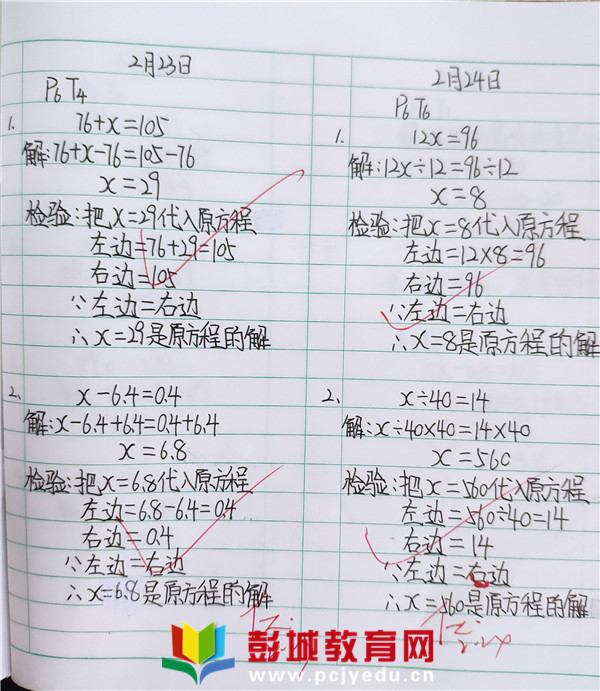 2月23日
P6 T4
1. 76+x=105
解:76+x-76=105-76
x=29
检验:把x=29代入原方程
左边=76+29=105
右边=105
∵左边=右边
∴x=29是原方程的解
2. x-6.4=0.4
解:x-6.4+6.4=0.4+6.4
x=6.8
检验:把x=6.8代入原方程
左边=6.8-6.4=0.4
右边=0.4
∵左边=右边
∴x=6.8是原方程的解
2月24日
P6 T6
1. 12x=96
解:12x÷12=96÷12
x=8
检验:把x=8代入原方程
左边=12×8=96
右边=96
∵左边=右边
∴x=8是原方程的解
2. x÷40=14
解:x÷40×40=14×40
x=560
检验:把x=560代入原方程
左边=560÷40=14
右边=14
∵左边=右边
∴x=560是原方程的解
彭城教育网
www.pcjyedu.cn